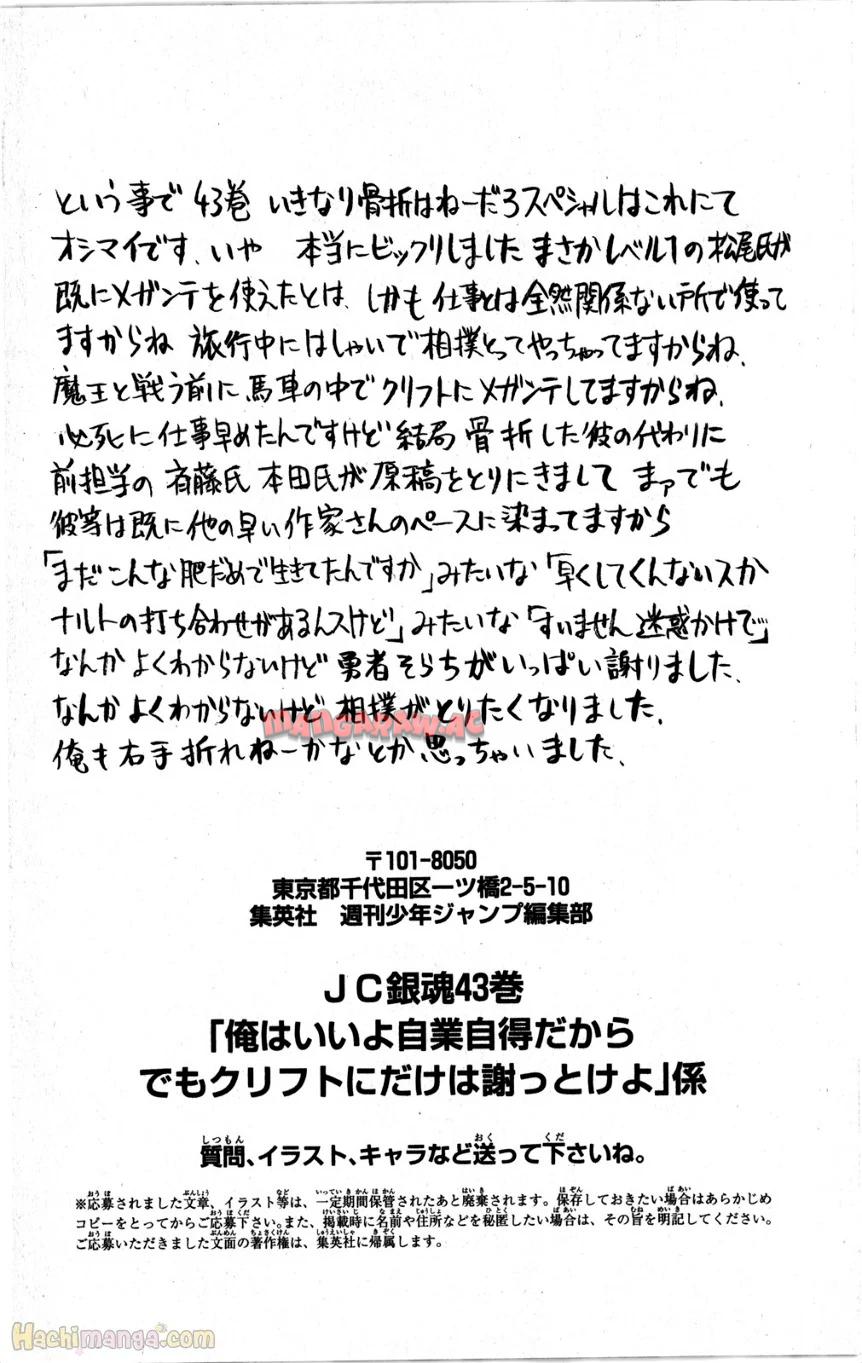 という事で 43巻 いきなり骨折はねーだろスペシャルはこれにて
オシマイです、いや 本当にビックリしました まさかレベル1の松尾氏が
既にメガンテを使えたとは、しかも仕事とは全然関係ない所で使って
ますからね 旅行中にはしゃいで相撲とってやっちゃってますからね、
魔王と戦う前に馬車の中でクリフトにメガンテしてますからね、
必死に仕事早めたんですけど結局 骨折した彼の代わりに
前担当の 斉藤氏 本田氏が原稿をとりにきまして まァでも
彼等は既に他の早い作家さんのペースに染まってますから
「まだこんな肥だめで生きてたんですか」みたいな「早くしてくんないスか
ナルトの打ち合わせがあるんスけど」みたいな「すいません迷惑かけて」
なんかよくわからないけど勇者そらちがいっぱい謝りました、
なんかよくわからないけど相撲がとりたくなりました、
MANGARAW.AC
俺も右手折れねーかなとか思っちゃいました、
〒101-8050
東京都千代田区一ツ橋2-5-10
集英社 週刊少年ジャンプ編集部
JC銀魂43巻
「俺はいいよ自業自得だから
でもクリフトにだけは謝っとけよ」係
質問、イラスト、キャラなど送って下さいね。
※応募されました文章、イラスト等は、一定期間保管されたあと廃棄されます。保存しておきたい場合はあらかじめ
コピーをとってからご応募下さい。また、掲載時に名前や住所などを秘匿したい場合は、その旨を明記してください。
ご応募いただきました文面の著作権は、集英社に帰属します。
Hachimanga.com